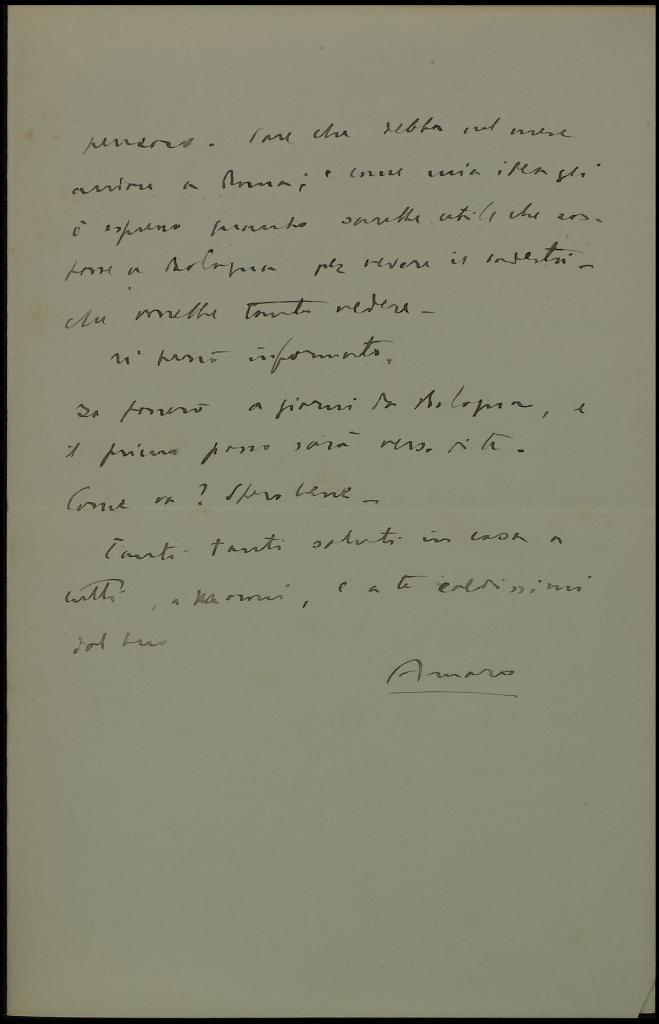 pensano. Pare che debba nel mese
andare a Roma; e come mia idea gli
ò espresso quanto sarebbe utile che
a Bologna per vedere i
che vorrebbe tanto vedere -
ti terrò informato.
Io passerò a giorni da Bologna, e
il primo passo sarà verso di te.
Come va? Spero bene -
Tanti tanti saluti in casa a
tutti, a, e a te caldissimi
dal tuo
Amaro